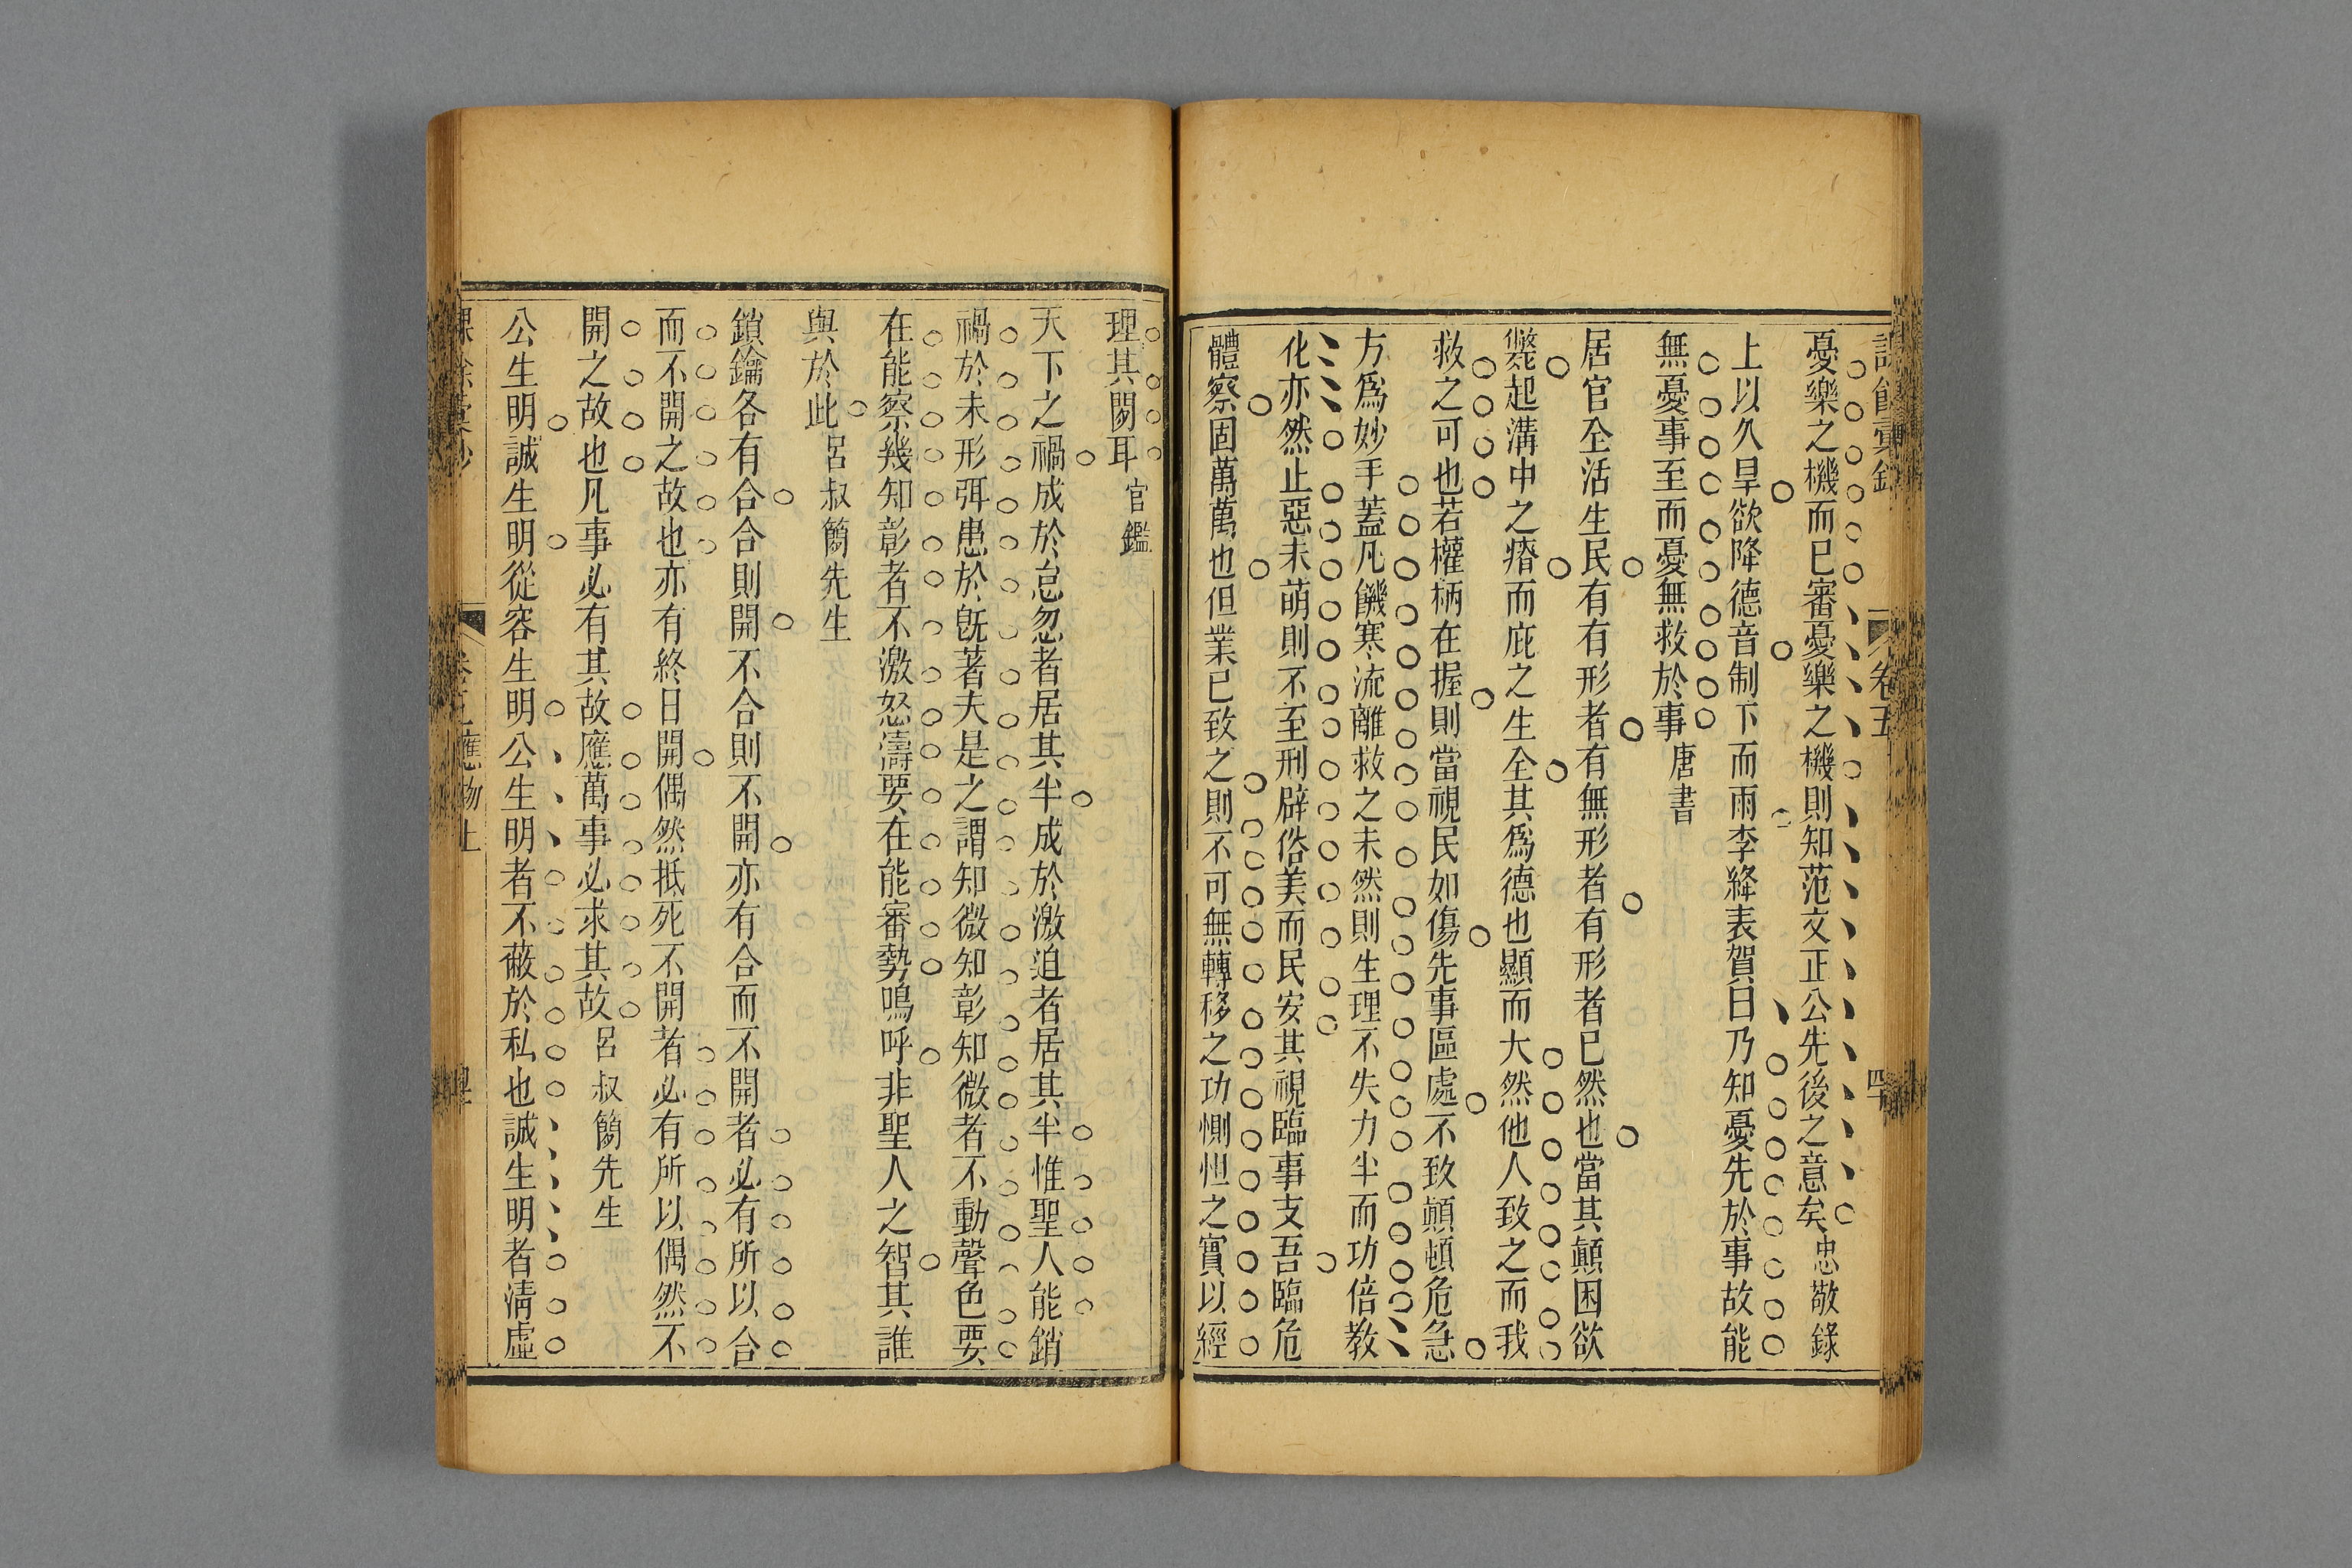 卷五
憂樂之機而已審憂樂之機則知范文正公先後之意矣忠敬錄
上以久旱欲降德音制下而雨李絳表賀曰乃知憂先於事故能
無憂事至而憂無救於事唐書
居官全活生民有有形者有無形者有形者已然也當其顛困欲
斃起溝中之瘠而庇之生全其爲德也顯而大然他人致之而我
救之可也若權柄在握則當視民如傷先事區處不致顛頓危急
方爲妙手蓋凡饑寒流離救之未然則生理不失力半而功倍教
化亦然止惡未萌則不至刑辟俗美而民安其視臨事支吾臨危
體察固萬萬也但業已致之則不可無轉移之功惻怛之實以經
理其闕耳官鑑
天下之禍成於怠忽者居其半成於激迫者居其半惟聖人能銷
禍於未形弭患於旣著夫是之謂知微知彰知微者不動聲色要
在能察幾知彰者不激怒濤要在能審勢嗚呼非聖人之智其誰
與於此呂叔簡先生
鎖鑰各有合合則開不合則不開亦有合而不開者必有所以合
而不開之故也亦有終日開偶然抵死不開者必有所以偶然不
開之故也凡事必有其故應萬事必求其故呂叔簡先生
公生明誠生明從容生明公生明者不蔽於私也誠生明者淸虛
應物上